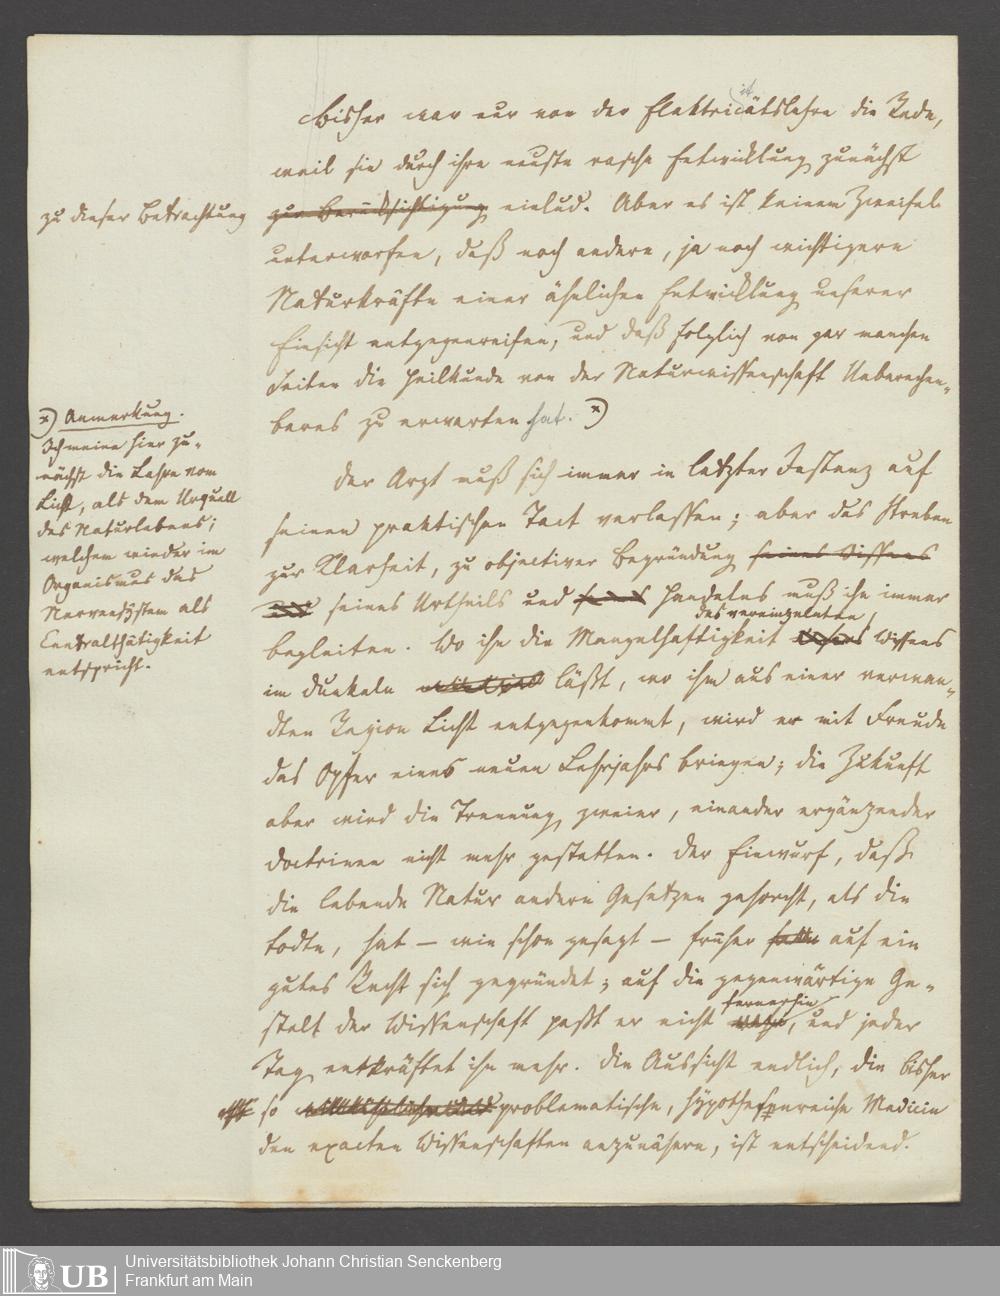 Bisher war nur von der Elektricitätslehre die Rede,
weil sie durch ihre neuste rasche Entwicklung zunächst
zu dieser Betrachtung
zur Berücksichtigung einlud. Aber es ist keinem Zweifel
unterworfen, daß noch andere, ja noch wichtigere
Naturkräfte einer ähnlichen Entwicklung unserer
Einsicht entgegenreifen, und daß folglich von gar manchen
Seiten die Heilkunde von der Naturwissenschaft Unberechen-
bares zu erwarten hat. *)
*) Anmerkung.
Ich meine hier zu-
nächst die Lehre vom
Licht, als dem Urquell
des Naturlebens;
welchem wieder im
Organismus das
Nervensÿstem als
Centralthätigkeit
entspricht.
Der Arzt muß sich immer in letzter Instanz auf
seinen praktischen Tact verlassen; aber das Streben
zur Klarheit, zu objectiver Begründung seines Wissens
seines Urtheils und seines Handelns muß ihn immer
begleiten. Wo ihn die Mangelhaftigkeit des vereinzelnten Wissens
im Dunkeln läßt, wo ihm aus einer verwan-
dten Region Licht entgegenkommt, wird er mit Freude
das Opfer eines neuen Lehrjahrs bringen; die Zukunft
aber wird die Trennung zweier, einander ergänzender
Doctrinen nicht mehr gestatten. Der Einwurf, daß
die lebende Natur andern Gesetzen gehorcht, als die
todte, hat – wie schon gesagt – früher auf ein
gutes Recht sich gegründet; auf die gegenwärtige Ge-
stalt der Wissenschaft paßt er nicht fernerhin, und jeder
Tag entkräftet ihn mehr. Die Aussicht endlich, die bisher
so problematische, hÿpothesenreiche Medicin
den exacten Wissenschaften anzunähern, ist entscheidend.
UB
Universitätsbibliothek Johann Christian Senckenberg
Frankfurt am Main